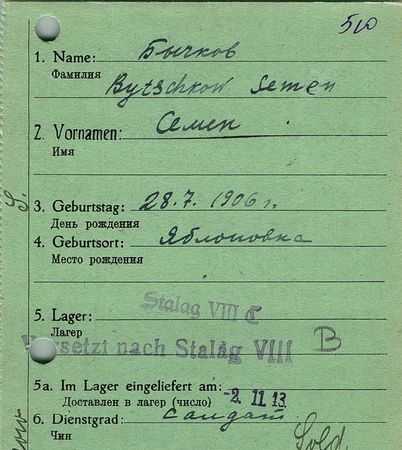 510
1. Name: Бычков
Фамилия
Bytschkow Semen
2. Vornamen: Семен
Имя
3. Geburtstag: 28.7.1906 г.
День рождения
4. Geburtsort: Яблоновка
Место рождения
5. Lager: Stalag VIII C
Лагер
Versetzt nach Stalag VIII B
5a. Im Lager eingeliefert am:
Доставлен в лагер (число) -2. 11. 13
6. Dienstgrad: салдат
Чин
Sold